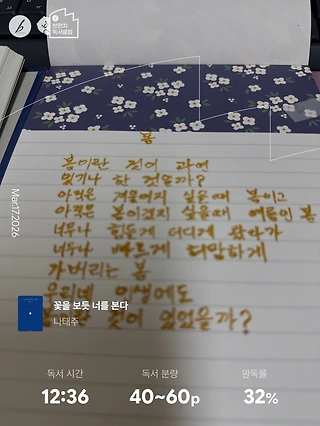 반반지
독서클럽
봄
봄이란 것이 과연
있기나 한 것일까?
아직은 겨울이지 싶을 때 봄이고
아직은 봄이겠지 싶을 때 여름인 봄
너무나 힘들게 더디게 왔다가
너무나 빠르게 허망하게
가버리는 봄
우리네 인생에도
것이 있었을까?
Mar.17.2026
꽃을 보듯 너를 본다
나태주
독서 시간 독서 분량 완독률
12:36 40~60p 32%